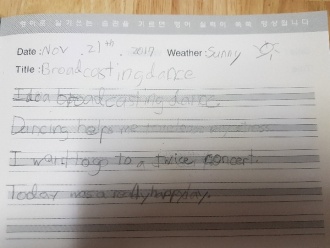 영어로 일기쓰는 습관을 기르면 영어 실력이 쑥쑥 향상됩니다
Date : Nov. 21th. 2017 Weather : Sunny
Title : Broadcasting dance
I do a broadcasting dance.
Dancing helps me
I want to go to a twice concert.
Today was a really happy day.